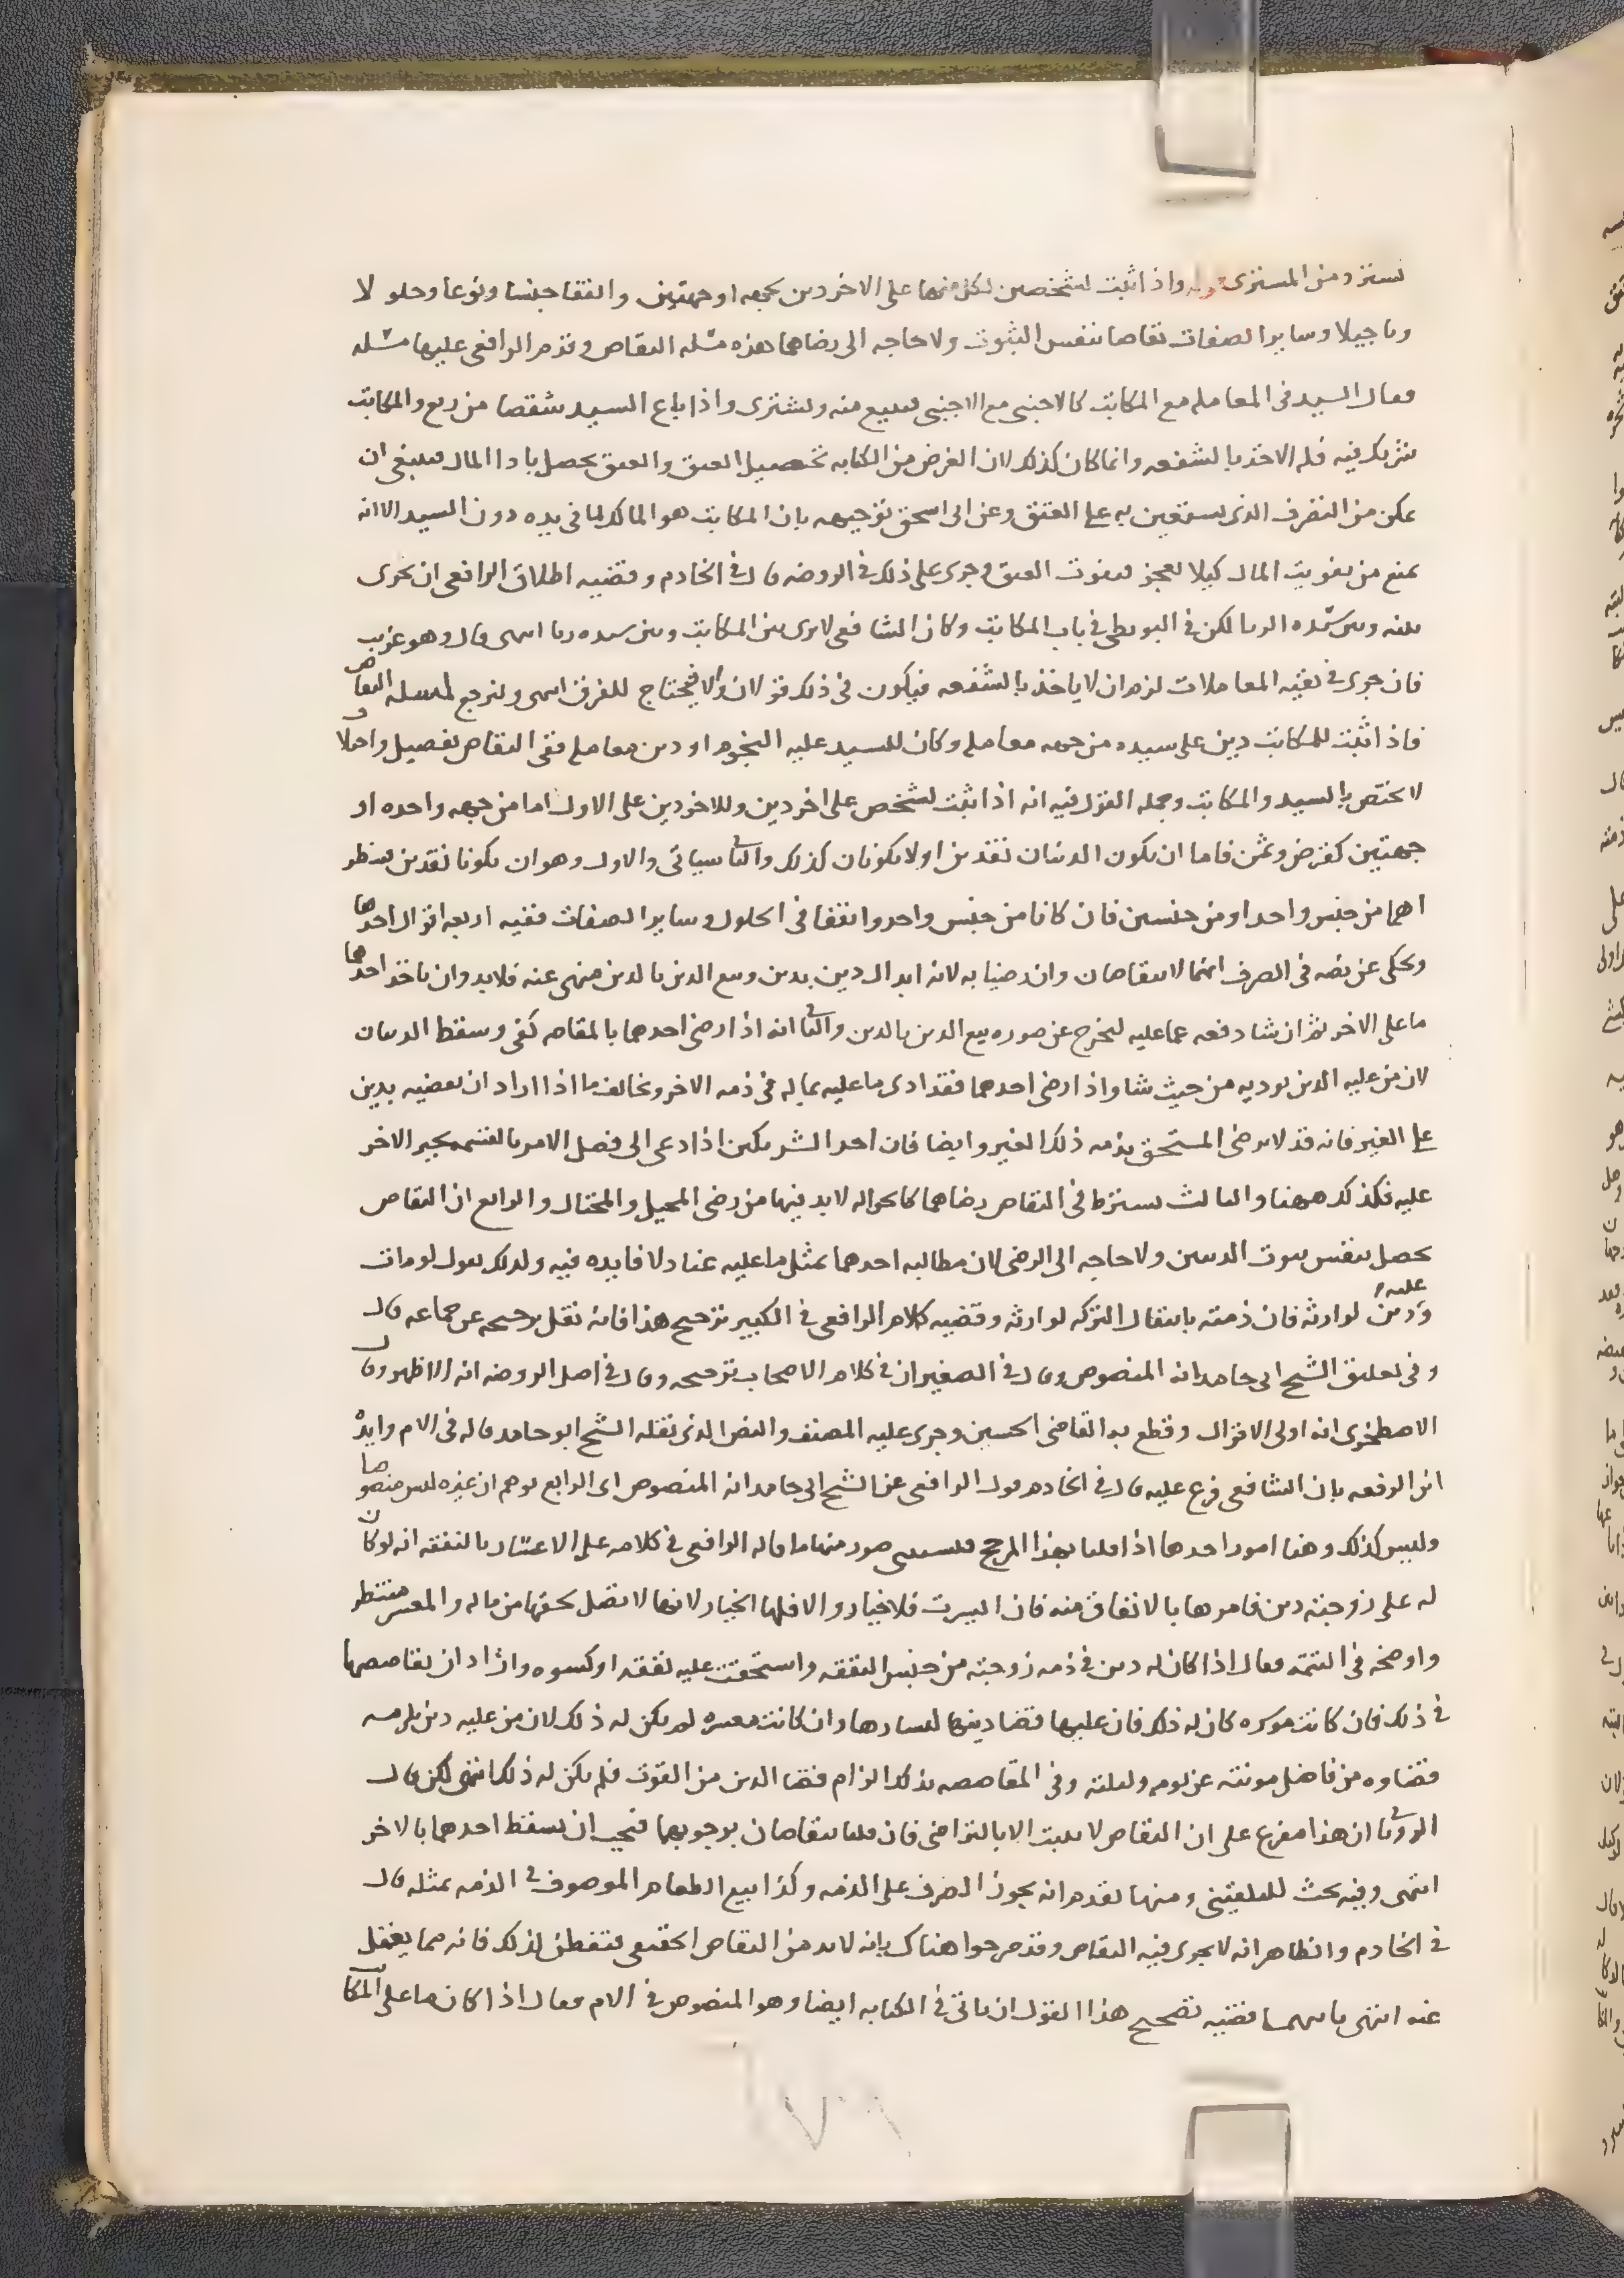 تسترد من المشتري قوله واذا ثبت لشخصين لكل منهما على الاخر دين بجهه او جهتين واتفقا جنسا ونوعا وحلولا
وتاجيلا وسايرا لصفات تقاصا بنفس الثبوت ولا حاجه الى رضاهما هذه مسله التقاص وقدم الرافعي عليها مسله
فقال السيد في المعامله مع المكاتب كالاجنبي مع الاجنبي فيبيع منه ويشتري واذا باع السيد شقصا من ربع والمكاتب
شريك فيه فله الاخذ بالشفعه وانما كان كذلك لان الغرض من الكتابه تحصيل العتق والعتق يحصل بادا المال فينبغي ان
يمكن من التصرف الذي يستعين به على العتق وعن ابي اسحق توجيهه بان المكاتب هو المالك لما في يده دون السيد الا انه
يمنع من تفويت المال كيلا يعجز فيفوت العتق وجرى على ذلك في الروضه قال في الخادم وقضيه اطلاق الرافعي ان يجرى
بينه وبين سيده الربا لكن في البويطي في باب المكاتب وكان الشافعي لا يرى بين المكاتب وبين سيده ربا انتهى قال وهو غريب
فان جرى في بقيه المعاملات لزم ان لا ياخذ بالشفعه فيكون في ذلك قولان والا فيحتاج للفرق انتهى ولنرجع لمسله التقاص
فاذا ثبت للمكاتب دين على سيده من جهه معامله وكان للسيد عليه النجوم او دين معامله ففي التقاص تفصيل واختلاف
لا يختص بالسيد والمكاتب وجمله القول فيه انه اذا ثبت لشخص على اخر دين وللاخر دين على الاول اما من جهه واحده او
جهتين كقرض وثمن فاما ان يكون الدينان نقدين او لا يكونان كذلك والثاني سياتي والاول وهو ان يكونا نقدين فينظر
اهما من جنس واحد او من جنسين فان كانا من جنس واحد واتفقا في الحلول وسايرا لصفات ففيه اربعه اقوال احدها
ويحكى عن نصه في الصرف انهما لا يتقاصان وان رضيا به لانه ابدال دين بدين وبيع الدين بالدين منهي عنه فلا بد وان ياخذ احدهما
ما على الاخر ثم ان شا دفعه عما عليه ليخرج عن صوره بيع الدين بالدين والثاني انه اذا رضى احدهما بالمقاصه كفى وسقط الدينان
لان من عليه الدين يوديه من حيث شا واذا رضى احدهما فقد ادى ما عليه بما له في ذمه الاخر ويخالف ما اذا اراد ان يقضيه بدين
على الغير فانه قد لا يرضى المستحق بذمه ذلك الغير وايضا فان احد الشريكين اذا دعى الى فصل الامر بالقسمه يجبر الاخر
عليه فكذلك ههنا والثالث يشترط في التقاص رضاهما كالحواله لا بد فيها من رضى المحيل والمحتال والرابع ان التقاص
يحصل بنفس ثبوت الدينين ولا حاجه الى الرضى لان مطالبه احدهما بمثل ما عليه عناد لا فايده فيه ولذلك نقول لو مات
وعليه دين لوارثه فان ذمته بانتقال التركه لوارثه وقضيه كلام الرافعي في الكبير ترجيح هذا فانه نقل ترجيحه عن جماعه قال
وفي تعليق الشيخ ابي حامد انه المنصوص وقال في الصغير ان في كلام الاصحاب ترجيحه وقال في اصل الروضه انه الاظهر وقال
الاصطخري انه اولى الاقوال وقطع به القاضي الحسين وجرى عليه المصنف والنص الذي نقله الشيخ ابو حامد قاله في الام وايده
ابن الرفعه بان الشافعي فرع عليه قال في الخادم قول الرافعي عن الشيخ ابي حامد انه المنصوص اى الرابع يوهم ان غيره ليس منصوصا
وليس كذلك وهنا امور احدها اذا قلنا بهذا المرجح فيستثنى صور منها ما قاله الرافعي في كلامه على الاعسار بالنفقه انه لو كان
له على زوجته دين فامرها بالانفاق منه فان ايسرت فلا خيار والا فلها الخيار لانها لا تصل لحقها من ماله والمعسر منتظر
واوضحه في التتمه فقال اذا كان له دين في ذمه زوجته من جنس النفقه واستحقت عليه نفقه او كسوه واراد ان يقاصصها
في ذلك فان كانت موسره كان له ذلك فان عليها قضا دينها ليسارها وان كانت معسره لم يكن له ذلك لان من عليه دين يلزمه
قضاوه من فاضل مونته عن يومه وليلته وفي المقاصصه بذلك الزام قضا الدين من القوت فلم يكن له ذلك انتهى لكن قال
الروياني ان هذا مفرع على ان التقاص لا يثبت الا بالتراضي فان قلنا يتقاصان بوجوبهما فيجب ان يسقط احدهما بالاخر
انتهى وفيه بحث للبلقيني ومنها تقدم انه يجوز الصرف على الذمه وكذا بيع الطعام الموصوف في الذمه بمثله قال
في الخادم والظاهر انه لا يجرى فيه التقاص وقد صرحوا هناك بانه لا بد من التقابض الحقيقي فتفطن لذلك فانه مما يغفل
عنه انتهى قضيه تصحيح هذا القول ان ياتي في الكتابه ايضا وهو المنصوص في الام فقال اذا كان ما على المكاتب